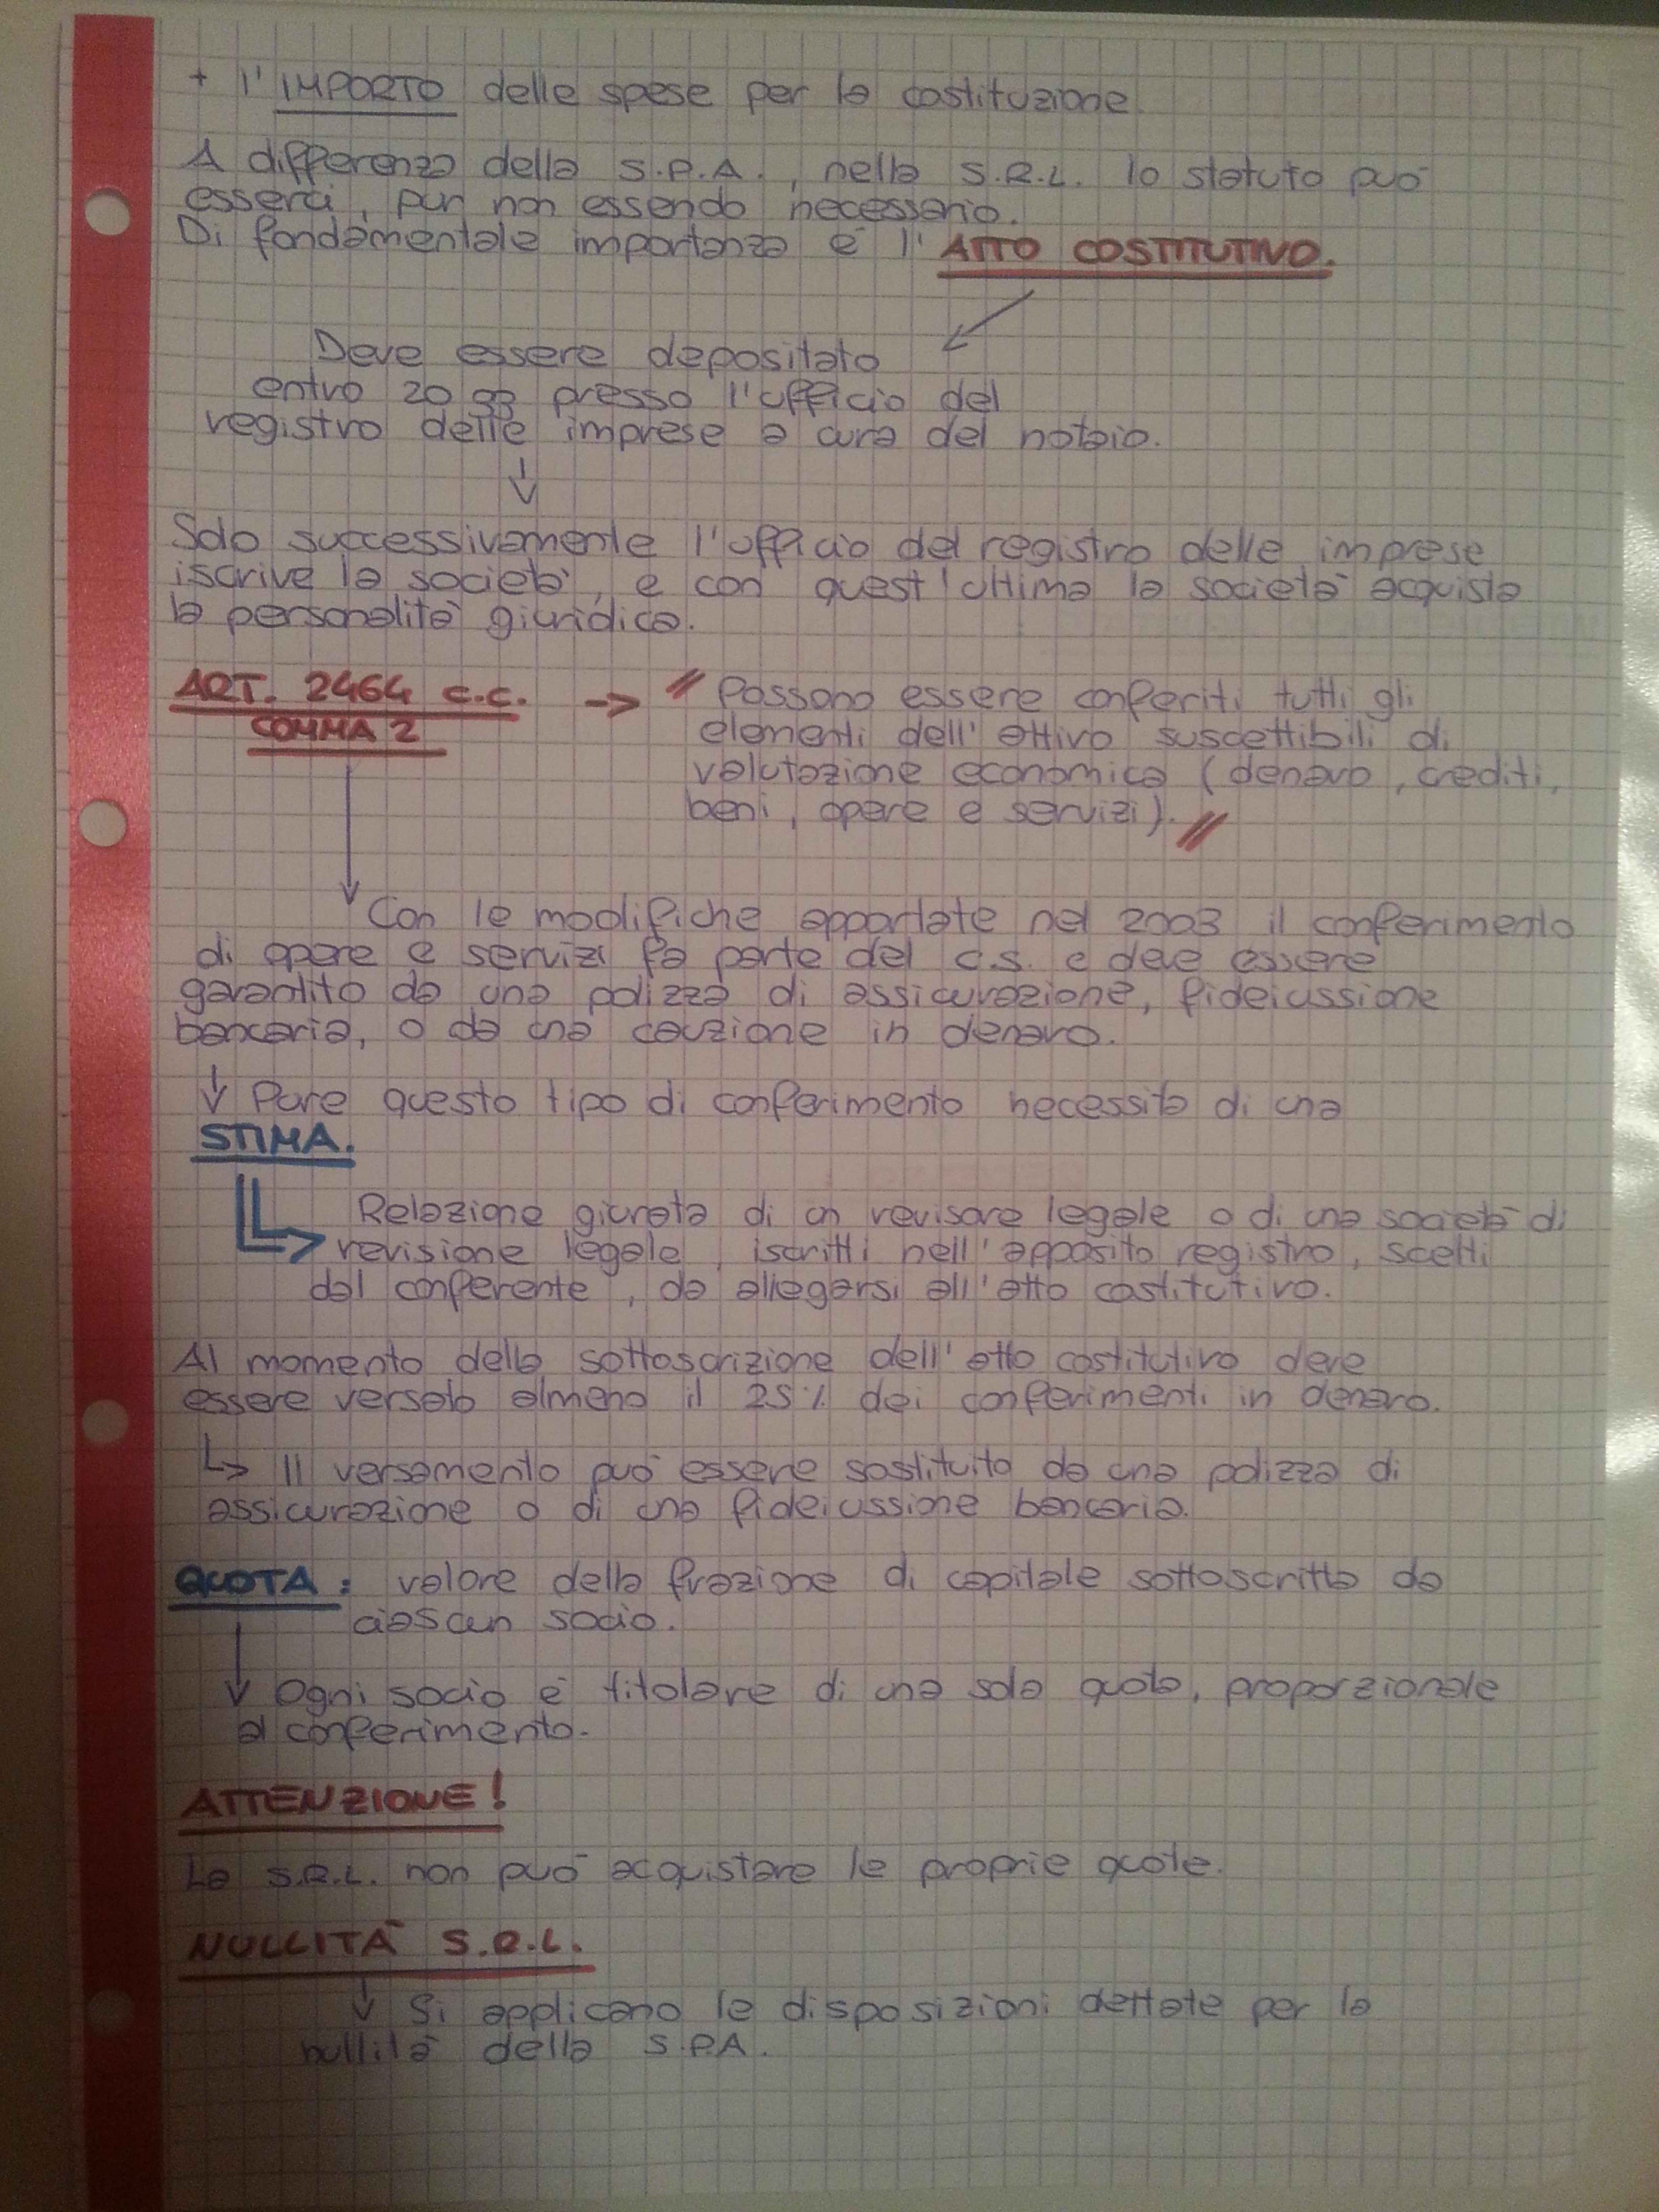 + l'IMPORTO delle spese per la costituzione.
A differenza della S.P.A., nella S.R.L. lo statuto può
esserci, pur non essendo necessario.
Di fondamentale importanza è l'ATTO COSTITUTIVO.
Deve essere depositato
entro 20 gg presso l'ufficio del
registro delle imprese a cura del notaio.
Solo successivamente l'ufficio del registro delle imprese
iscrive la società, e con quest'ultima la società acquista
la personalità giuridica.
ART. 2464 c.c. -> " Possono essere conferiti tutti gli
COMMA 2 elementi dell'attivo suscettibili di
valutazione economica (denaro, crediti,
beni, opere e servizi). "
Con le modifiche apportate nel 2003 il conferimento
di opere e servizi fa parte del c.s. e deve essere
garantito da una polizza di assicurazione, fideiussione
bancaria, o da una cauzione in denaro.
Pure questo tipo di conferimento necessita di una
STIMA.
Relazione giurata di un revisore legale o di una società di
revisione legale, iscritti nell'apposito registro, scelti
dal conferente, da allegarsi all'atto costitutivo.
Al momento della sottoscrizione dell'atto costitutivo deve
essere versato almeno il 25% dei conferimenti in denaro.
Il versamento può essere sostituito da una polizza di
assicurazione o di una fideiussione bancaria.
QUOTA: valore della frazione di capitale sottoscritta da
ciascun socio.
Ogni socio è titolare di una sola quota, proporzionale
al conferimento.
ATTENZIONE!
La S.R.L. non può acquistare le proprie quote.
NULLITÀ S.R.L.
Si applicano le disposizioni dettate per la
nullità della S.P.A.